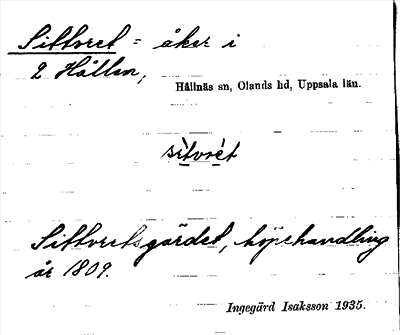 Sittvret = åker i
2 Hållen,
Hållnäs sn, Olands hd, Uppsala län.
sìtvrèt
Sittvretsgärdet, köpehandling
år 1809.
Ingegärd Isaksson 1935.